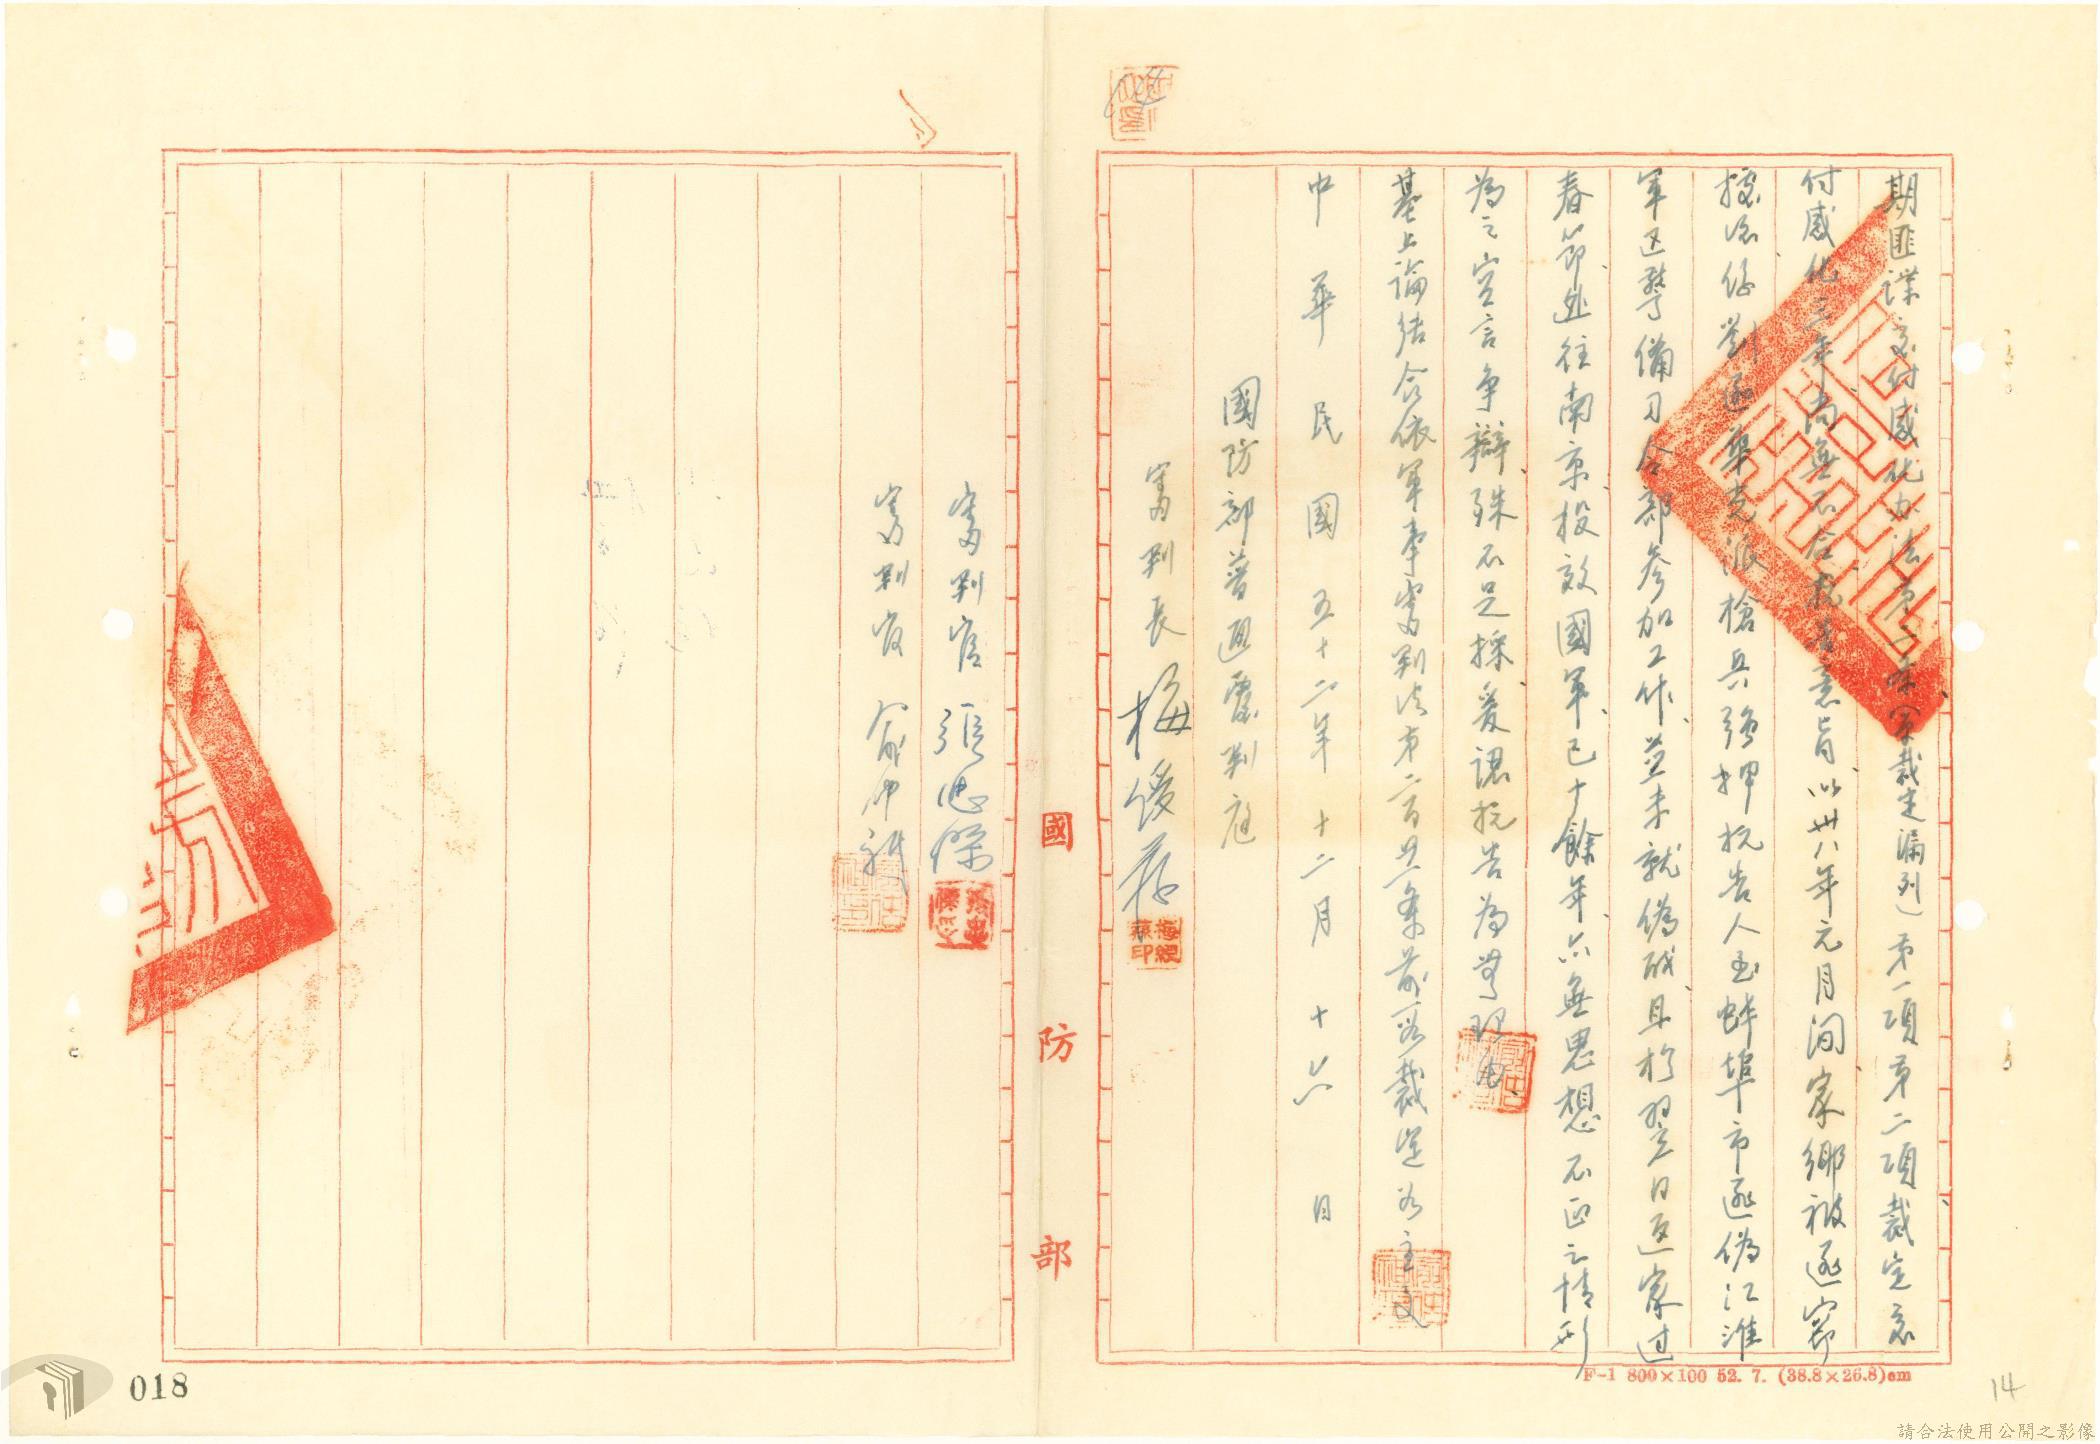 期匪諜交付感化办法第二条(原裁定漏列)第一項第二項裁定交
付感化三年尚無不合抗告意旨以卅八年元月间家鄉被逐
派槍兵強押抗告人至蚌埠市逐偽江淮
軍区警備司令部参加工作並未就偽職且於翌日返家过
春節迯往南京投效國軍已十餘年六無思想不正之情形
為之空言争辯殊不足採爰認抗告為無理由
基上論結合依軍事審判法第二百 条前段裁定如主文
中華民國五十二年十二月十六日
國防部普通覆判庭
審判長 梅綬蓀
審判官 張忠傑
審判官
國防部
F-1 800×100 52. 7. (38.8×26.8)cm
14
018
請合法使用公開之影像